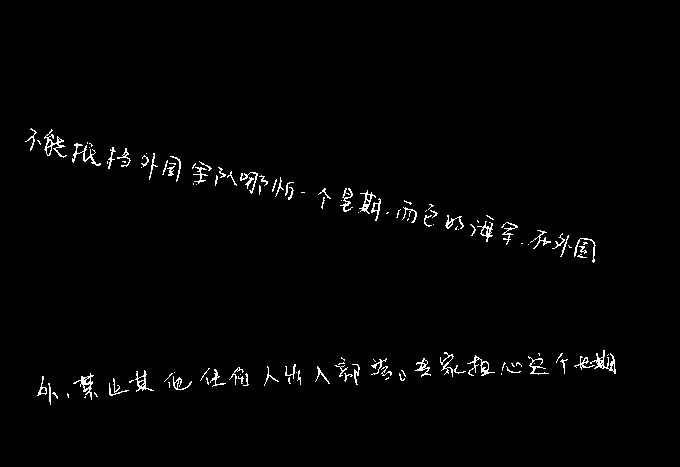 不能抵挡外国军队哪怕一个星期,而它的海军,在外国
外,禁止其他任何人出入部落。专家担心这个长期